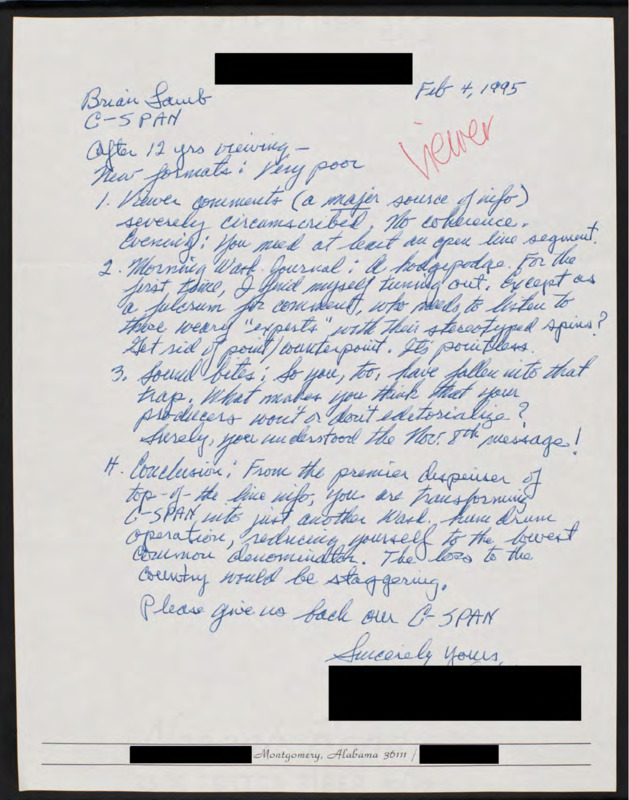 Feb 4, 1995
Brian Lamb
C-SPAN
viewer
After 12 yrs viewing —
New formats: Very poor
1. Viewer comments (a major source of info)
severely circumscribed. No coherence.
Evening: You need at least an open line segment.
2. Morning Wash. Journal: A hodgepodge. For the
first time, I find myself tuning out. Except as
a fulcrum for comment, who needs to listen to
those weary "experts" with their stereotyped spins?
Get rid of point/counterpoint. It's pointless.
3. Sound bites: So you, too, have fallen into that
trap. What makes you think that your
producers won't or don't editorialize?
Surely, you understood the Nov. 8th message!
4. Conclusion: From the premier dispenser of
top-of-the line info, you are transforming
C-SPAN into just another Wash. hum drum
operation, reducing yourself to the lowest
common denominator. The loss to the
country would be staggering.
Please give us back our C-SPAN
Sincerely yours,
Montgomery, Alabama 36111 /